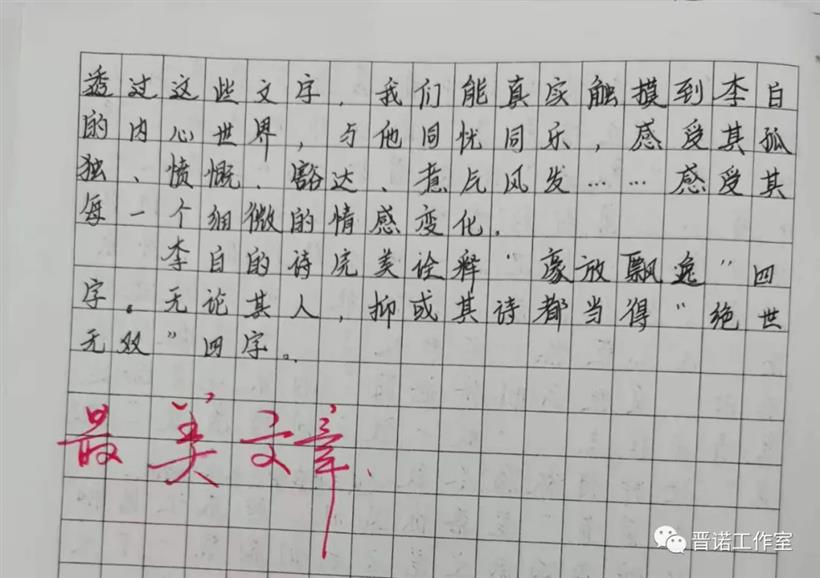 透过这些文字，我们能真实触摸到李白
的内心世界，与他同忧同乐，感受其孤
独、愤慨、豁达、意气风发……感受其
每一个细微的情感变化。
李白的诗完美诠释“豪放飘逸”四
字。无论其人，抑或其诗都当得“绝世
无双”四字。
最美文章.
晋诺工作室